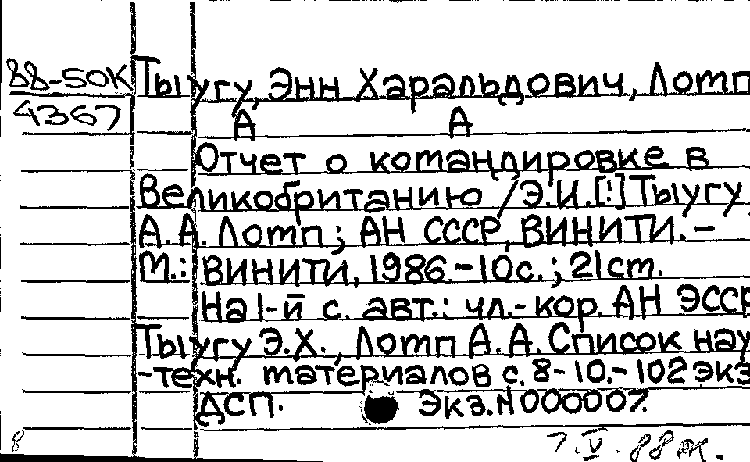 88-50К Тыугу, Энн Харальдович, Лотп
4367
А А
Отчет о командировке в
Великобританию / Э.И.[!] Тыугу
А.А. Лотп; АН СССР, ВИНИТИ. –
М.: ВИНИТИ, 1986.-10с.; 21ст.
На 1-й с. авт.: чл.-кор. АН ЭССР
Тыугу Э.Х., Лотп А.А. Список нау
-техн. материалов с. 8-10.-102 экз
ДСП. Экз. N 000007.
8 7.V.88